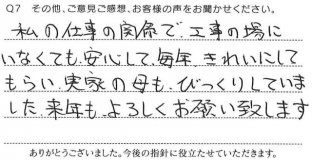 Q7 その他、ご意見ご感想、お客様の声をお聞かせください。
私の仕事の関係で、工事の場に
いなくても、安心して、毎年、きれいにして
もらい、実家の母も、びっくりしていま
した。来年も、よろしくお願い致します
ありがとうございました。今後の指針に役立たせていただきます。